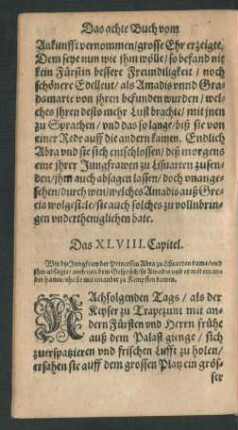 Das achte Buch vom
Ankunfft vernommen/grosse Ehr erzeigte,
Dem seye nun wie jhm wölle/so befand nit
kein Fürstin bessere Freundtligkeit/noch
schönere Edelleut/als Amadis vnnd Gra-
damarte von jhren befunden wurden/wel-
ches jhren desto mehr Lust brachte/mit jnen
zu Sprachen/vnd das so lange/biß sie von
einer Rede auff die andern kamen. Endlich
Abra vnd sie sich entschlossen/diß morgens
eine jhrer Jungfrawen zu Lisuarten zusen-
den/jhm auch absagen lassen/doch vnange-
sehen/durch wen/welches Amadis auß Gre-
cia wolgefiele/sie auch solches zu vollnbrin-
gen vndertheniglichen bate.
Das XLVIII. Capitel.
Wie die Jungfraw der Princessin Abra zu Lisuarten kame/vnd
jhm absagte/auch von dem Gespräch/so Amadis vnd er mit einan-
der hatten/ehe sie mit einander zu Kempffen kamen.
NAchfolgenden Tags/als der
Keyser zu Trapezunt mit an-
dern Fürsten vnd Herrn frühe
auß dem Palast gienge/sich
zuerspatzieren vnd frischen Lufft zu holen/
ersahen sie auff dem grossen Platz ein grös-
ser